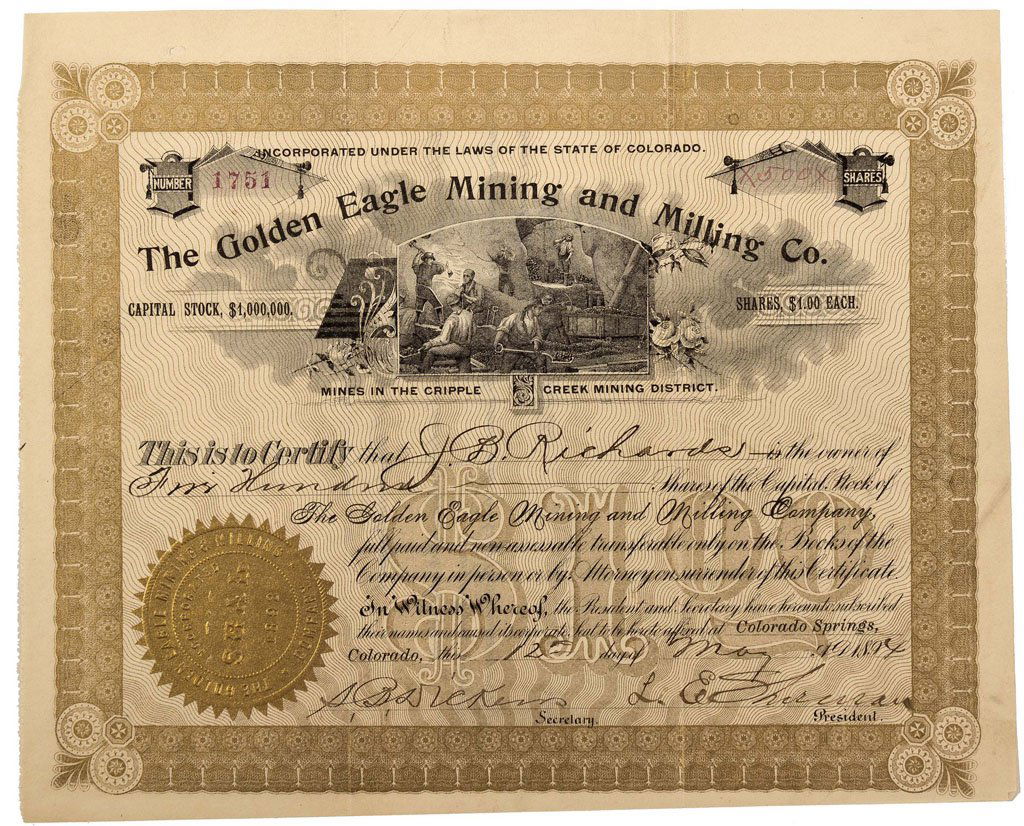 INCORPORATED UNDER THE LAWS OF THE STATE OF COLORADO.
NUMBER 1751
X500X SHARES
The Golden Eagle Mining and Milling Co.
CAPITAL STOCK, $1,000,000.
SHARES, $1.00 EACH.
MINES IN THE CRIPPLE CREEK MINING DISTRICT.
This is to Certify that J. B. Richards is the owner of
Hundred Shares of the Capital Stock of
The Golden Eagle Mining and Milling Company,
full paid and non-assessable transferable only on the Books of the
Company in person or by Attorney on surrender of this Certificate.
In Witness Whereof, the President and Secretary have hereunto subscribed
their names and caused its corporate seal to be hereto affixed at Colorado Springs,
Colorado, this 12 day of May 1894
THE GOLDEN EAGLE MINING & MILLING COMPANY
SEAL
L. E. Sherman
Secretary.
President.